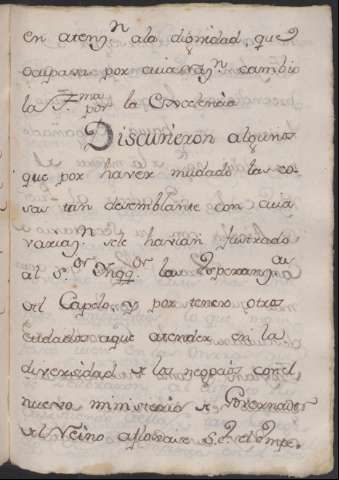 en atenz.n ala dignidad, que
ocupava por cuia raz.n cambio
la Il.ma por la Excelencia
Discurrieron algunos
que por haver mudado las co-
sas tan desemblante con cuia
variaz.n sele havian frustrado
al S.or Inqq.or las Esperanz.as
del Capelo, y por tener otros
cuidados aque atender en la
diversidad de los negocios con el
nuevo ministerio de Governador
del Reino, afloxava S.E. el Impe-